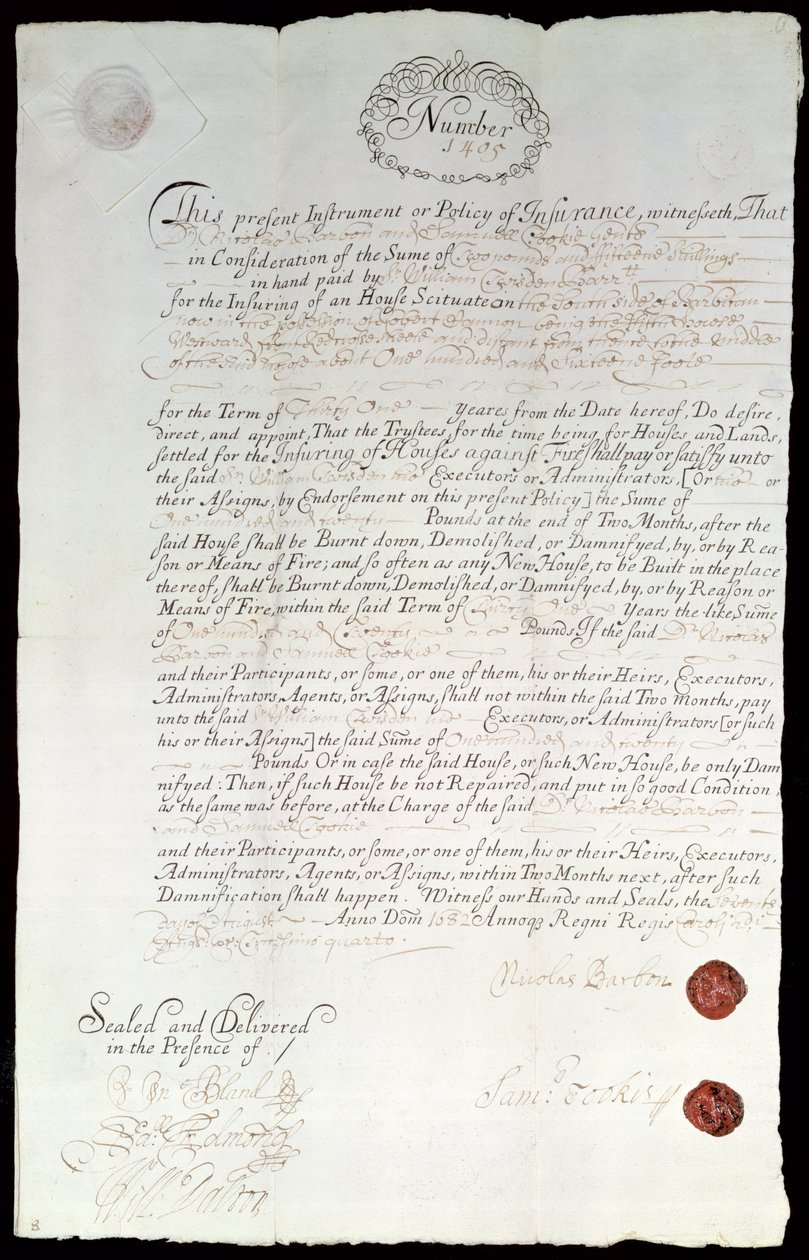 Number
1405
This present Instrument or Policy of Insurance, witnesseth, That
Dr. Nicolas Barbon and Samuell Tookie Gents
in Consideration of the Sume of Two pounds and fifteene Shillings
in hand paid by Sr. William Twisden Barrtt
for the Insuring of an House Scituate on the South side of Barbican
now in the possession of Robert Hannon being the fifth house
Westward from Redcrosse streete and distant from thence to the middle
of the said house about One hundred and Sixteene foote
for the Term of Thirty One Yeares from the Date hereof, Do desire,
direct, and appoint, That the Trustees, for the time being, for Houses, and Lands,
settled for the Insuring of Houses against Fire shall pay or satisfy unto
the said Sr. William Twisden his Executors or Administrators, [Or his or
their Assigns, by Endorsement on this present Policy] the Sume of
One hundred and twenty Pounds at the end of Two Months, after the
said House shall be Burnt down, Demolished, or Damnifyed, by, or by Rea-
son or Means of Fire; and so often as any New House, to be Built in the place
thereof, shall be Burnt down, Demolished, or Damnifyed, by, or by Reason or
Means of Fire, within the said Term of Thirty One Years the like Sume
of One hundred and Twenty Pounds If the said Dr. Nicolas
Barbon and Samuell Tookie
and their Participants, or some, or one of them, his or their Heirs, Executors,
Administrators, Agents, or Assigns, shall not within the said Two Months, pay
unto the said Sr William Twisden his Executors, or Administrators [or such
his or their Assigns] the said Sume of One hundred and twenty
Pounds Or in case the said House, or such New House, be only Dam
nifyed: Then, if such House be not Repaired, and put in so good Condition,
as the same was before, at the Charge of the said Dr. Nicolas Barbon
and Samuell Tookie
and their Participants, or some, or one of them, his or their Heirs, Executors,
Administrators, Agents, or Assigns, within Two Months next, after such
Damnification shall happen. Witness our Hands and Seals, the Seventh
day of August Anno Dom 1682 Annoq3 Regni Regis Caroli 2di
Angl: &c: Tricesimo quarto.
Nicolas Barbon
Sealed and Delivered
in the Presence of. /
Jn Bland
Sam: Tookie
Edmonds
Will: Dalton
8